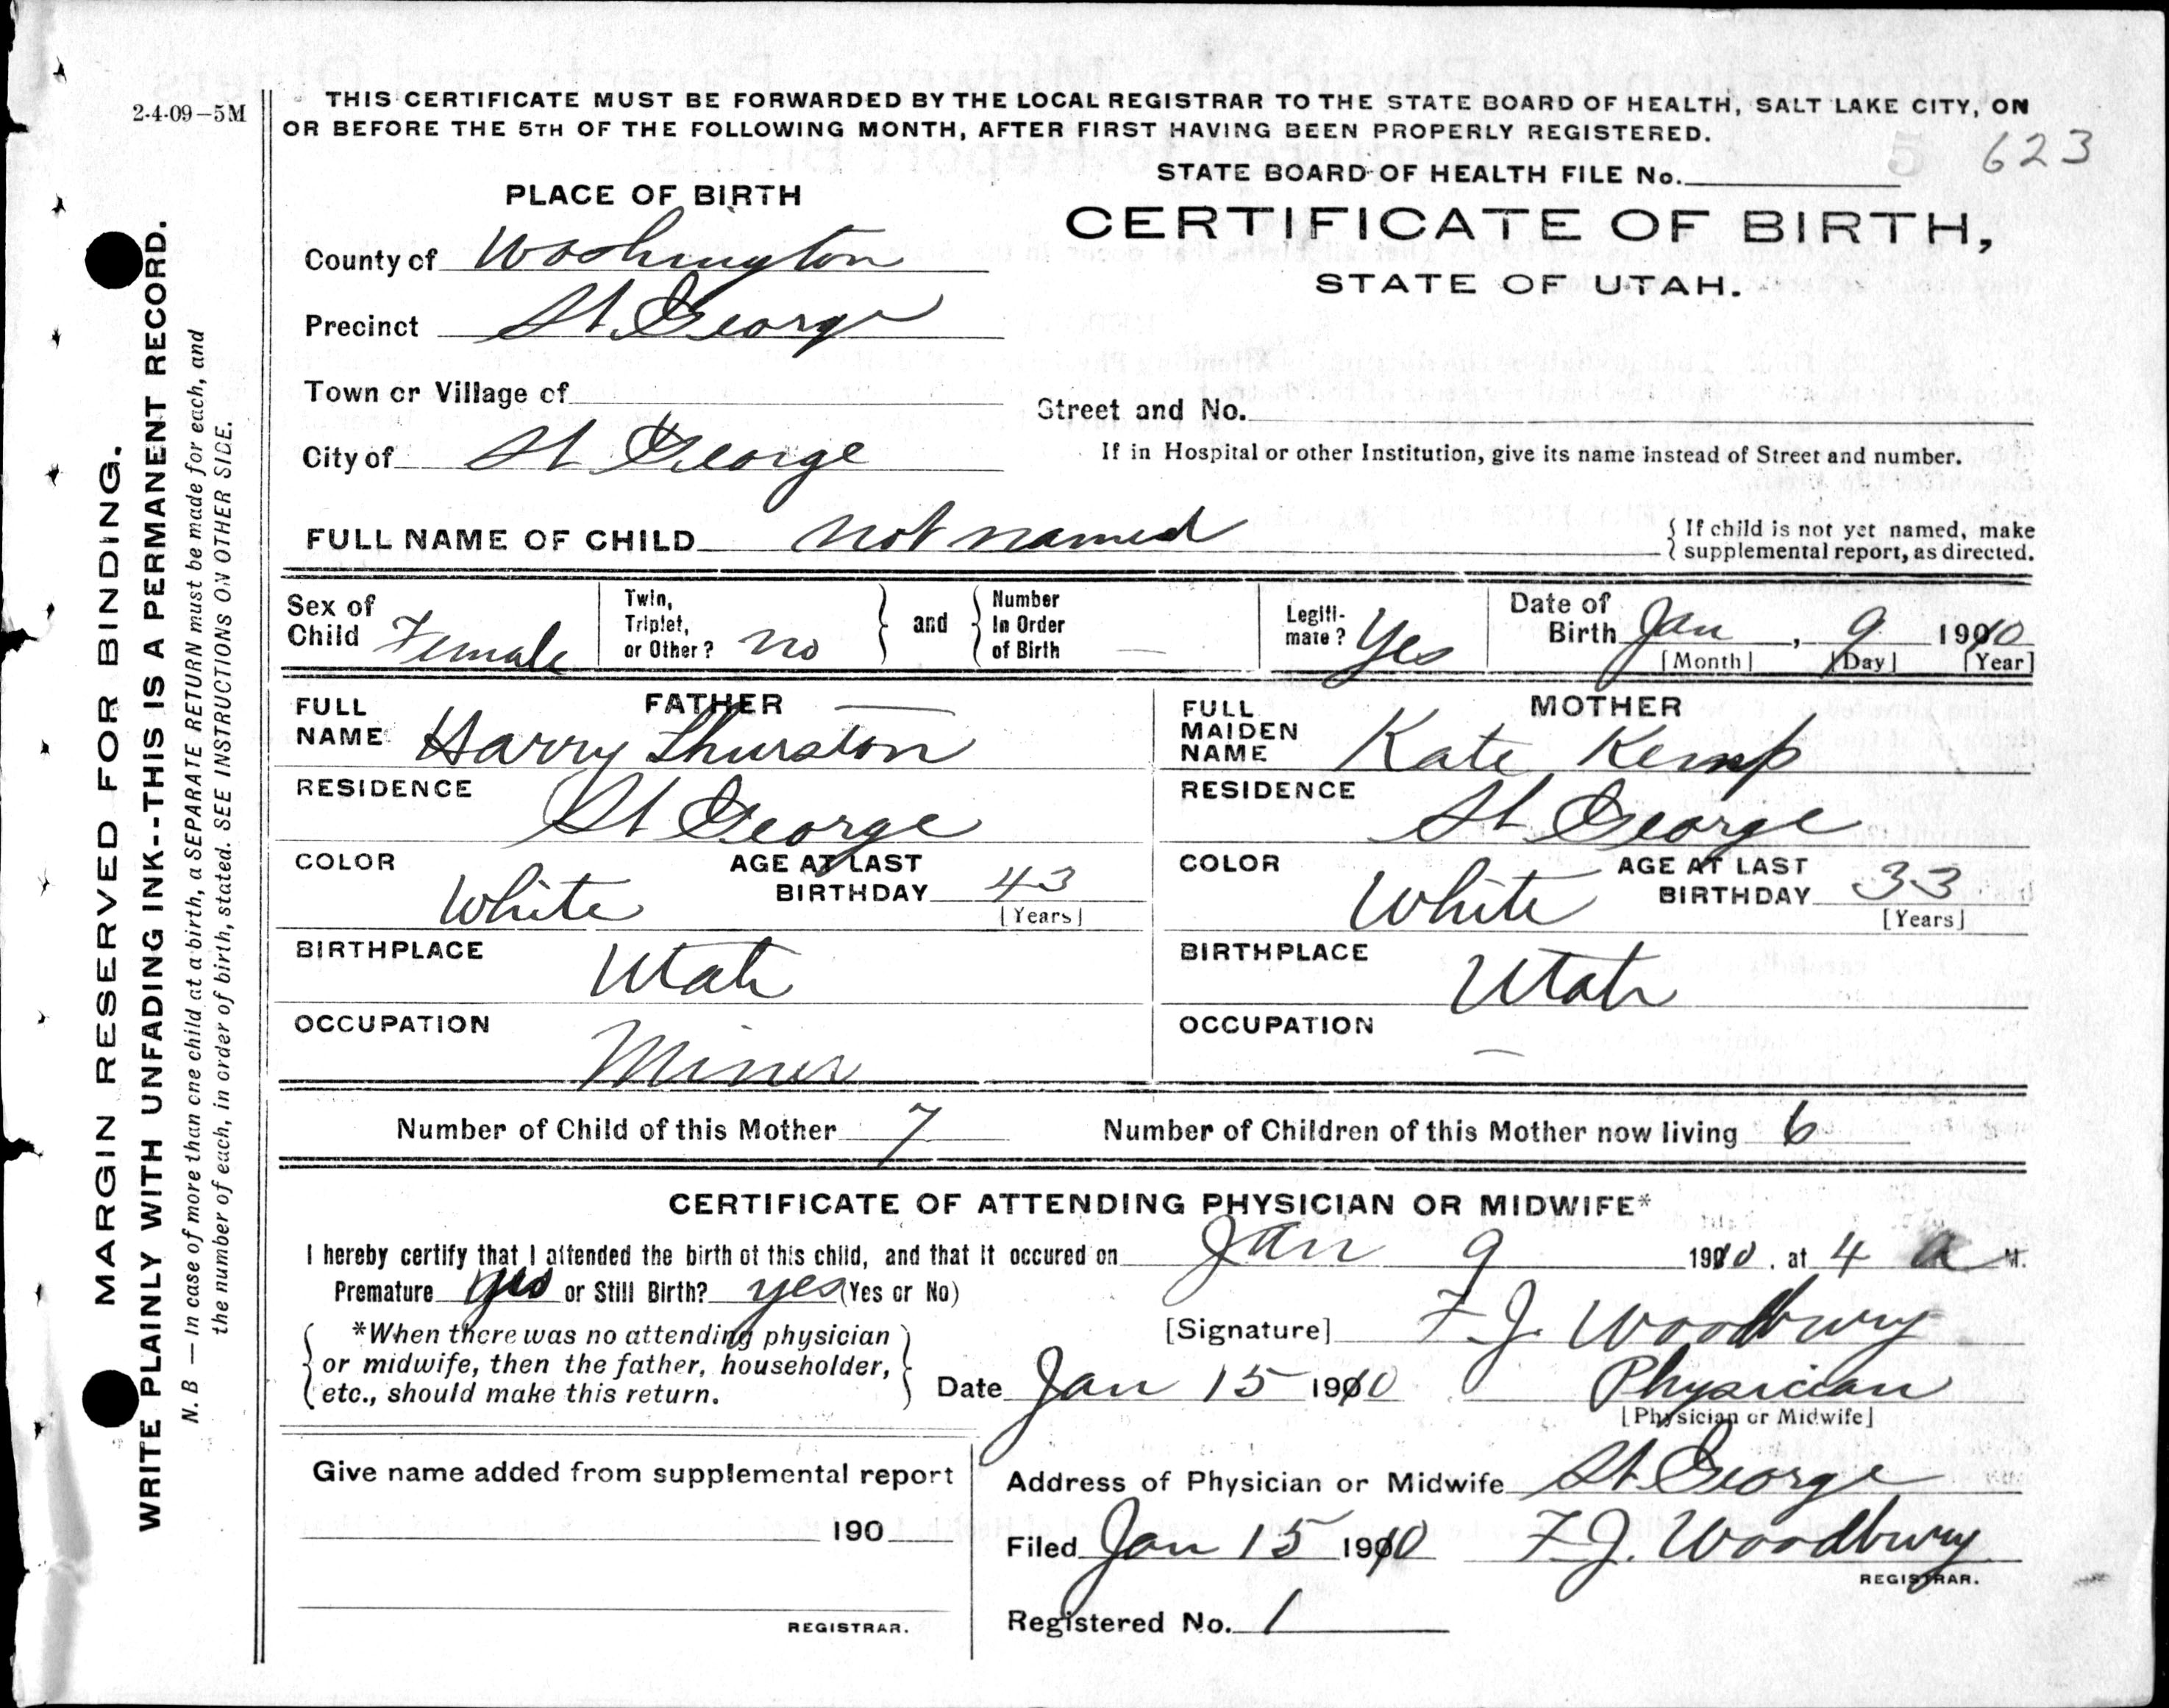 2-4-09-5M
THIS CERTIFICATE MUST BE FORWARDED BY THE LOCAL REGISTRAR TO THE STATE BOARD OF HEALTH, SALT LAKE CITY, ON
OR BEFORE THE 5TH OF THE FOLLOWING MONTH, AFTER FIRST HAVING BEEN PROPERLY REGISTERED.
5 623
STATE BOARD OF HEALTH FILE No.
CERTIFICATE OF BIRTH,
STATE OF UTAH.
PLACE OF BIRTH
County of Washington
Precinct St. George
Town or Village of
Street and No.
City of St George
If in Hospital or other Institution, give its name instead of Street and number.
FULL NAME OF CHILD not named
{ If child is not yet named, make
{ supplemental report, as directed.
Sex of Child Female
Twin, Triplet, or Other? no } and { Number In Order of Birth —
Legitimate? Yes
Date of Birth Jan, 9 1910
[Month] [Day] [Year]
FATHER
FULL NAME Harry Thurston
RESIDENCE St George
COLOR White AGE AT LAST BIRTHDAY 43
[Years]
BIRTHPLACE Utah
OCCUPATION Miner
MOTHER
FULL MAIDEN NAME Kate Kemp
RESIDENCE St George
COLOR White AGE AT LAST BIRTHDAY 33
[Years]
BIRTHPLACE Utah
OCCUPATION —
Number of Child of this Mother 7 Number of Children of this Mother now living 6
CERTIFICATE OF ATTENDING PHYSICIAN OR MIDWIFE*
I hereby certify that I attended the birth of this child, and that it occured on Jan 9 1910, at 4 a M.
Premature yes or Still Birth? yes (Yes or No)
*When there was no attending physician
or midwife, then the father, householder,
etc., should make this return.
[Signature] F. J. Woodbury
Date Jan 15 1910 Physician
[Physician or Midwife]
Give name added from supplemental report
190
REGISTRAR.
Address of Physician or Midwife St. George
Filed Jan 15 1910 F. J. Woodbury
REGISTRAR.
Registered No. 1
MARGIN RESERVED FOR BINDING.
WRITE PLAINLY WITH UNFADING INK--THIS IS A PERMANENT RECORD.
N. B — In case of more than one child at a birth, a SEPARATE RETURN must be made for each, and
the number of each, in order of birth, stated. SEE INSTRUCTIONS ON OTHER SIDE.